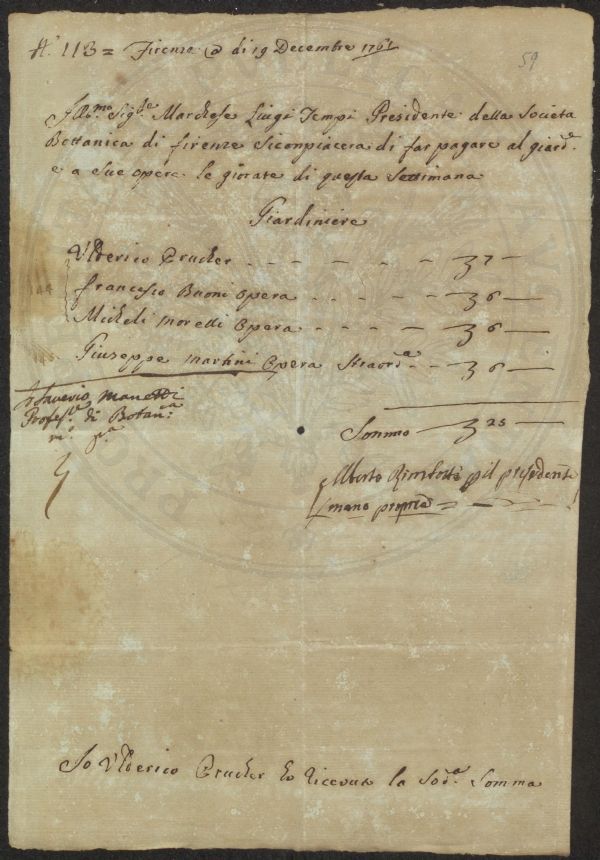 N.º 113 = Firenze @ di 19 Decembre 1761
59
Ill.mo Sig.re Marchese Luigi Tempi Presidente della Societa
Bottanica di firenze Siconpiacera di far pagare al giard.e
e a sue opere le giorate di questa Settimana
Giardiniere
Ulderico Prucher - - - - - - 7 —
francesco Buoni opera - - - - - 6 —
Micheli Moretti Opera - - - - - 6 —
Giuseppe Martini Opera Straord.a - - 6 —
Saverio Manetti
Profes.e di Botan.ca
m.o p.a
Somma 25 —
Alberto Rimbotti p il presidente
mano propria
Io Ulderico Prucher ho Riceuto la Sod.a Somma